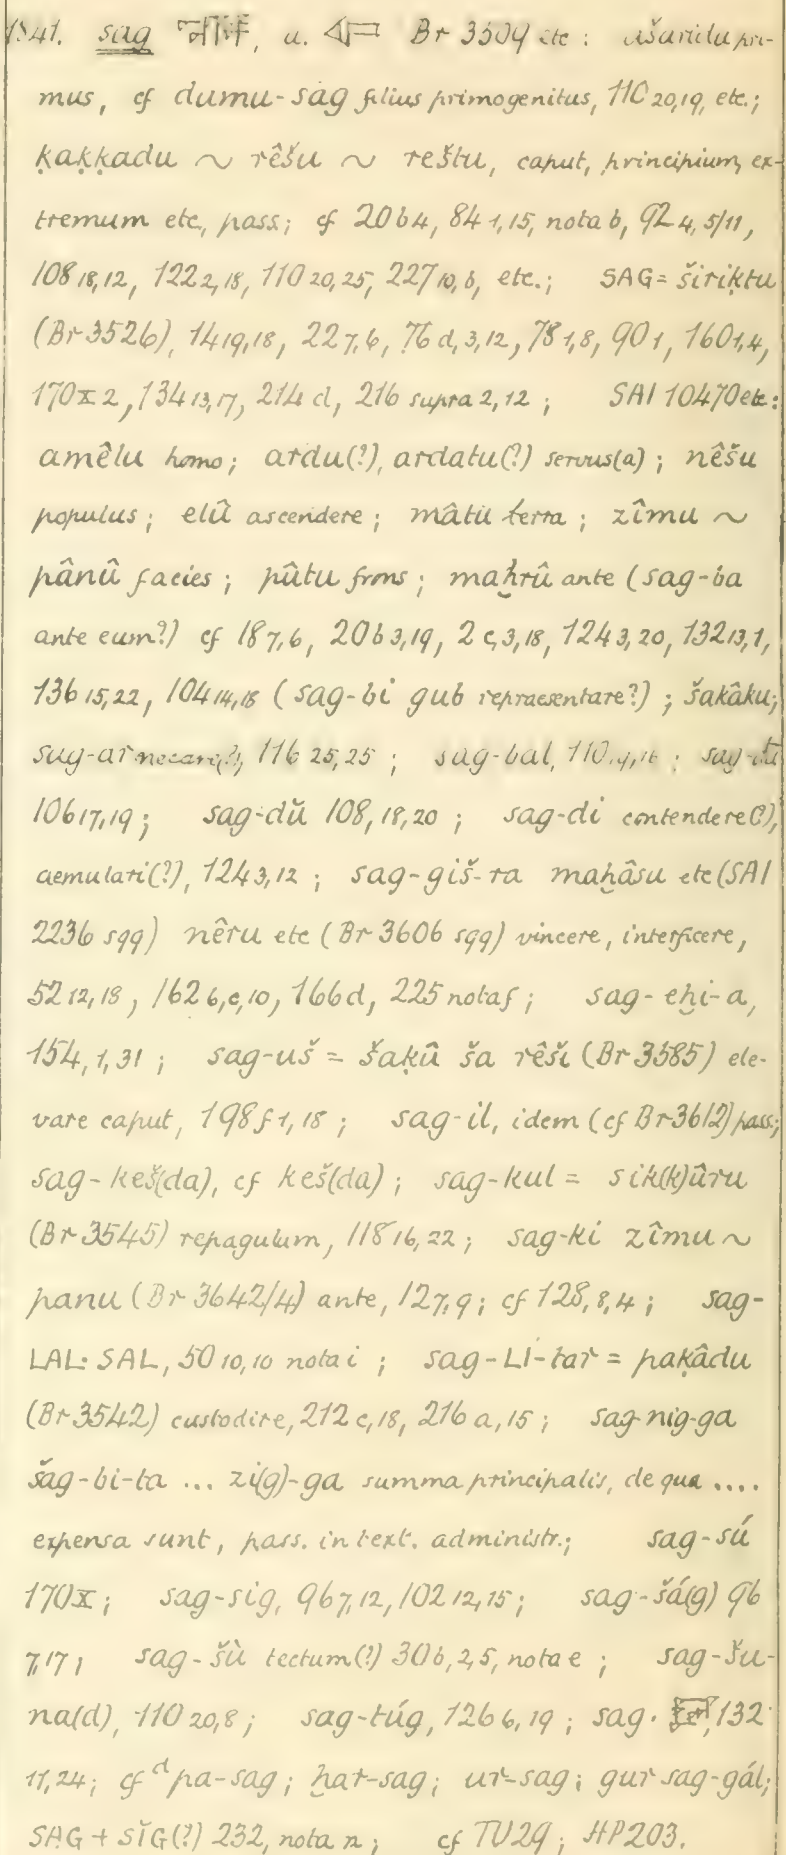 1341. sag 𒊕, u. Br 3509 etc : ašaridu pri-
mus, cf dumu-sag filius primogenitus, 110 20,19, etc.;
ḳaḳḳadu ~ rêšu ~ reštu, caput, principium, ex-
tremum etc, pass; cf 20 b 4, 84 1,15, nota b, 92 4, 5/11,
108 18,12, 122 2,18, 110 20,25, 227 10, b, etc.; SAG = širiḳtu
(Br 3526), 14 19,18, 22 7,6, 76 d, 3,12, 78 1,8, 90 1, 160 1,4,
170 X 2, 134 13,17, 214 d, 216 supra 2,12 ; SAI 10470 etc:
amêlu homo; ardu(?), ardatu(?) servus(a) ; nêšu
populus ; elû ascendere ; mâtu terra ; zîmu ~
pânû facies ; pûtu frons ; maḫrû ante (sag-ba
ante eum?) cf 18 7,6, 20 b 3,19, 2 c, 3,18, 124 3,20, 132 13,1,
136 15,22, 104 14,18 (sag-bi gub repraesentare?) ; šakâku;
sag-ar necare(?), 116 25,25 ; sag-bal, 110 ; sag-
106 17,19 ; sag-dŭ 108, 18,20 ; sag-di contendere(?),
aemulari(?), 124 3,12 ; sag-giš-ra maḫâsu etc (SAI
2236 sqq) nêru etc (Br 3606 sqq) vincere, interficere,
52 12,18, 162 6,c,10, 166 d, 225 nota f ; sag-eḫi-a,
154, 1, 31 ; sag-uš = šaḳû ša rêši (Br 3585) ele-
vare caput, 198 f 1,18 ; sag-il, idem (cf Br 3612) pass;
sag-keš(da), cf keš(da) ; sag-kul = sik(k)ûru
(Br 3545) repagulum, 118 16,22 ; sag-ki zîmu ~
panu (Br 3642/4) ante, 12 7,9 ; cf 128, 8,4 ; sag-
LAL: SAL, 50 10,10 nota i ; sag-LI-tar = paḳâdu
(Br 3542) custodire, 212 c,18, 216 a,15 ; sag-nig-ga
šag-bi-ta ... zi(g)-ga summa principalis, de qua ....
expensa sunt, pass. in text. administr.; sag-sú
170 X ; sag-sig, 96 7,12, 102 12,15 ; sag-šá(g) 96
7,17 ; sag-šù tectum(?) 30 b, 2,5, nota e ; sag-šu-
na(d), 110 20,8 ; sag-túg, 126 6,19 ; sag. 132
11,24; cf ᵈpa-sag ; ḫar-sag ; ur-sag ; gur sag-gál;
SAG + SĬG(?) 232, nota n ; cf TU 29 ; HP 203.